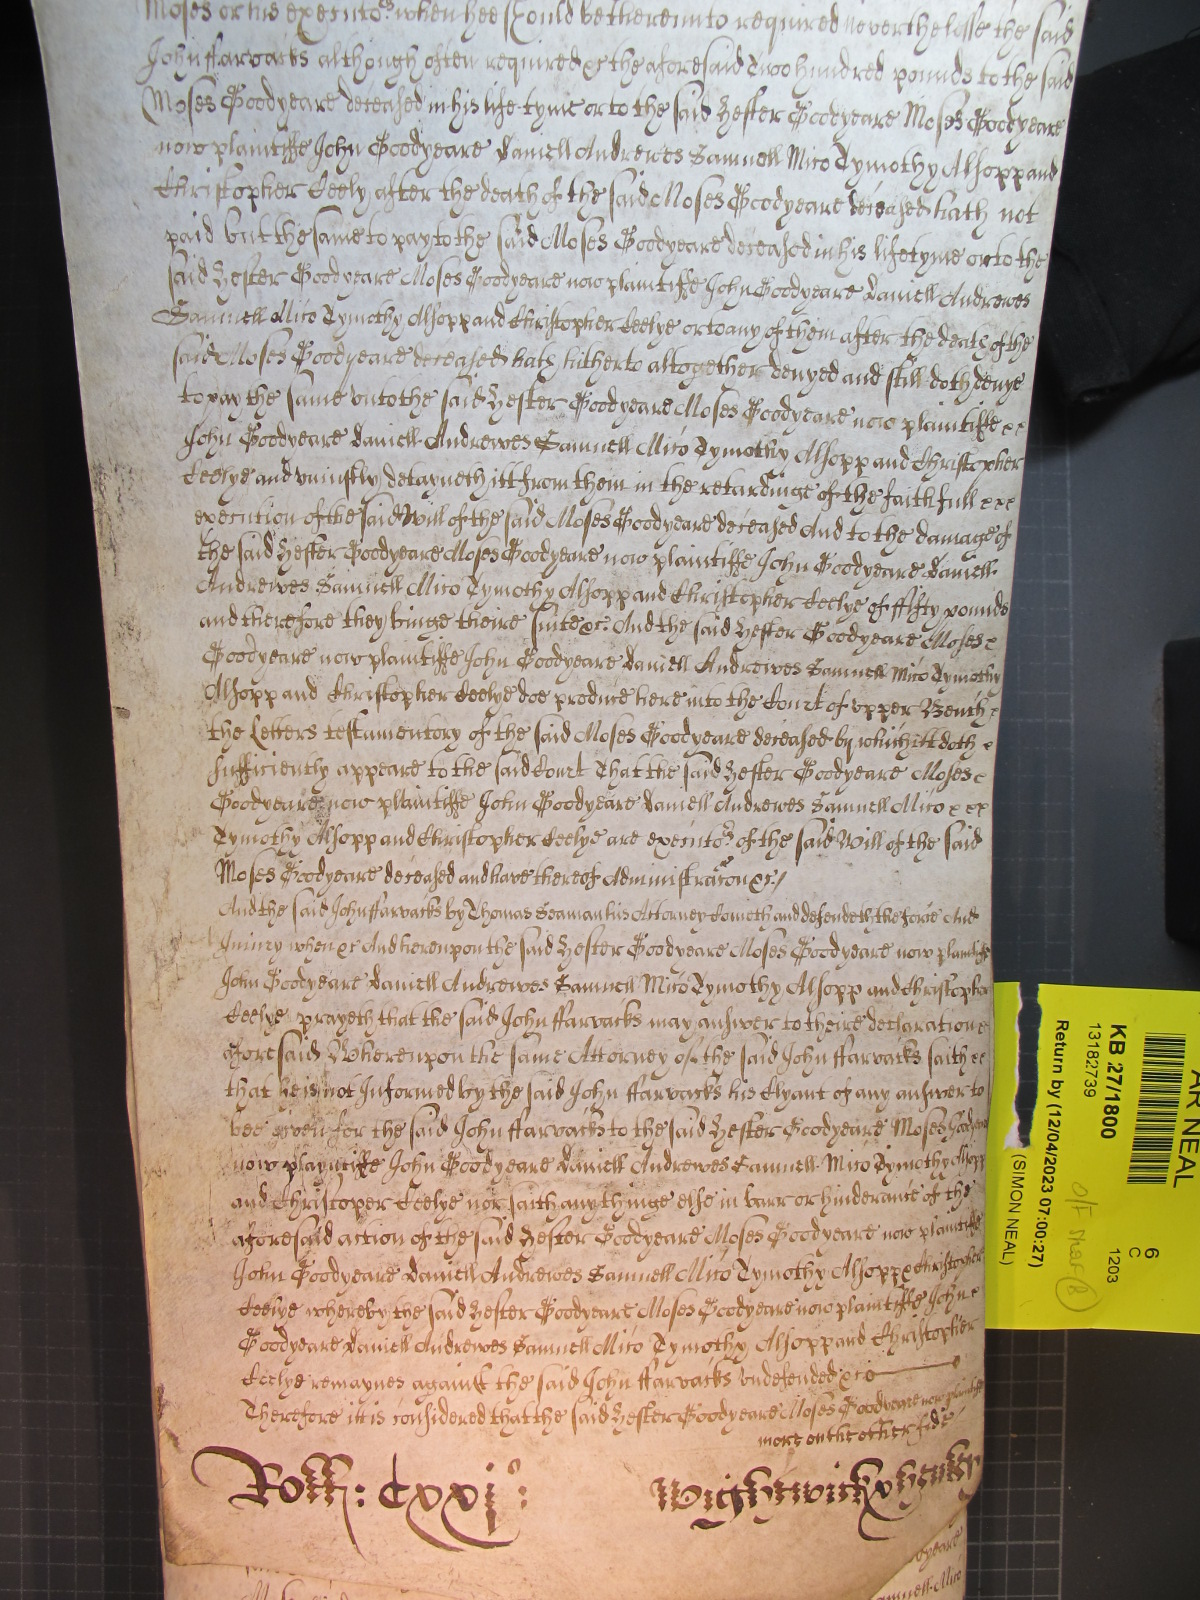 Moses or his executo:rs when hee should be thereunto required neverthelesse the said
John ffarvacks although often required &c the aforesaid Twoo hundred pounds to the said
Moses Goodyeare deceased in his life tyme or to the said Hester Goodyeare Moses Goodyeare
now plaintiffe John Goodyeare Daniell Andrewes Samuell Mico Tymothy Alsopp and
Christopher Ceely after the death of the said Moses Goodyeare deceased hath not
paid but the same to pay to the said Moses Goodyeare deceased in his lifetyme or to the
said Hester Goodyeare Moses Goodyeare now plaintiffe John Goodyeare Daniell Andrewes
Samuell Mico Tymothy Alsopp and Christopher Ceelye or to any of them after the death of the
said Moses Goodyeare deceased hath hitherto altogether denyed and still doth denye
to pay the same unto the said Hester Goodyeare Moses Goodyeare now plaintiffe
John Goodyeare Daniell Andrewes Samuell Mico Tymothy Alsopp and Christopher
Ceelye and uniustly detayneth itt from them in the retardinge of the faithfull
execution of the said Will of the said Moses Goodyeare deceased And to the damage of
the said Hester Goodyeare Moses Goodyeare now plaintiffe John Goodyeare Daniell
Andrewes Samuell Mico Tymothy Alsopp and Christopher Ceelye of ffifty pounds
and therefore they bringe theire suite &c: And the said Hester Goodyeare Moses
Goodyeare now plaintiffe John Goodyeare Daniell Andrewes Samuell Mico Tymothy
Alsopp and Christopher Ceelye doe produce here into the Court of upper Bench
the Letters testamentory of the said Moses Goodyeare deceased by which itt doth
sufficiently appeare to the said Court That the said Hester Goodyeare Moses
Goodyeare now plaintiffe John Goodyeare Daniell Andrewes Samuell Mico
Tymothy Alsopp and Christopher Ceelye are executo:rs of the said Will of the said
Moses Goodyeare deceased and have thereof Administracon &c:/
And the said John ffarvacks by Thomas Seaman his Attorney cometh and defendeth the force And
Iniury when &c And hereupon the said Hester Goodyeare Moses Goodyeare now plaintiffe
John Goodyeare Daniell Andrewes Samuell Mico Tymothy Alsopp and Christopher
Ceelye prayeth that the said John ffarvacks may answer to theire declaration
aforesaid Whereupon the same Attorney of the said John ffarvacks saith
that he is not Informed by the said John ffarvacks his Clyant of any answer to
bee given for the said John ffarvacks to the said Hester Goodyeare Moses Goodyeare
now playntiffe John Goodyeare Daniell Andrewes Samuell Mico Tymothy Alsopp
and Christoper Ceelye nor saith anythinge else in barr or hinderance of the
aforesaid action of the said Hester Goodyeare Moses Goodyeare now plaintiffe
John Goodyeare Daniell Andrewes Samuell Mico Tymothy Alsopp & Christopher
Ceelye whereby the said Hester Goodyeare Moses Goodyeare now plaintiffe John
Goodyeare Daniell Andrewes Samuell Mico Tymothy Alsopp and Christopher
Ceelye remaynes against the said John ffarvacks undefended &c
Therefore itt is considered that the said Hester Goodyeare Moses Goodyeare now plaintiffe
more on the other side
Roll: Cxxj:o
Wightwick
AR NEAL
KB 27/1800
13182739
Return by (12/04/2023 07:00:27)
(SIMON NEAL)
6
C
1203